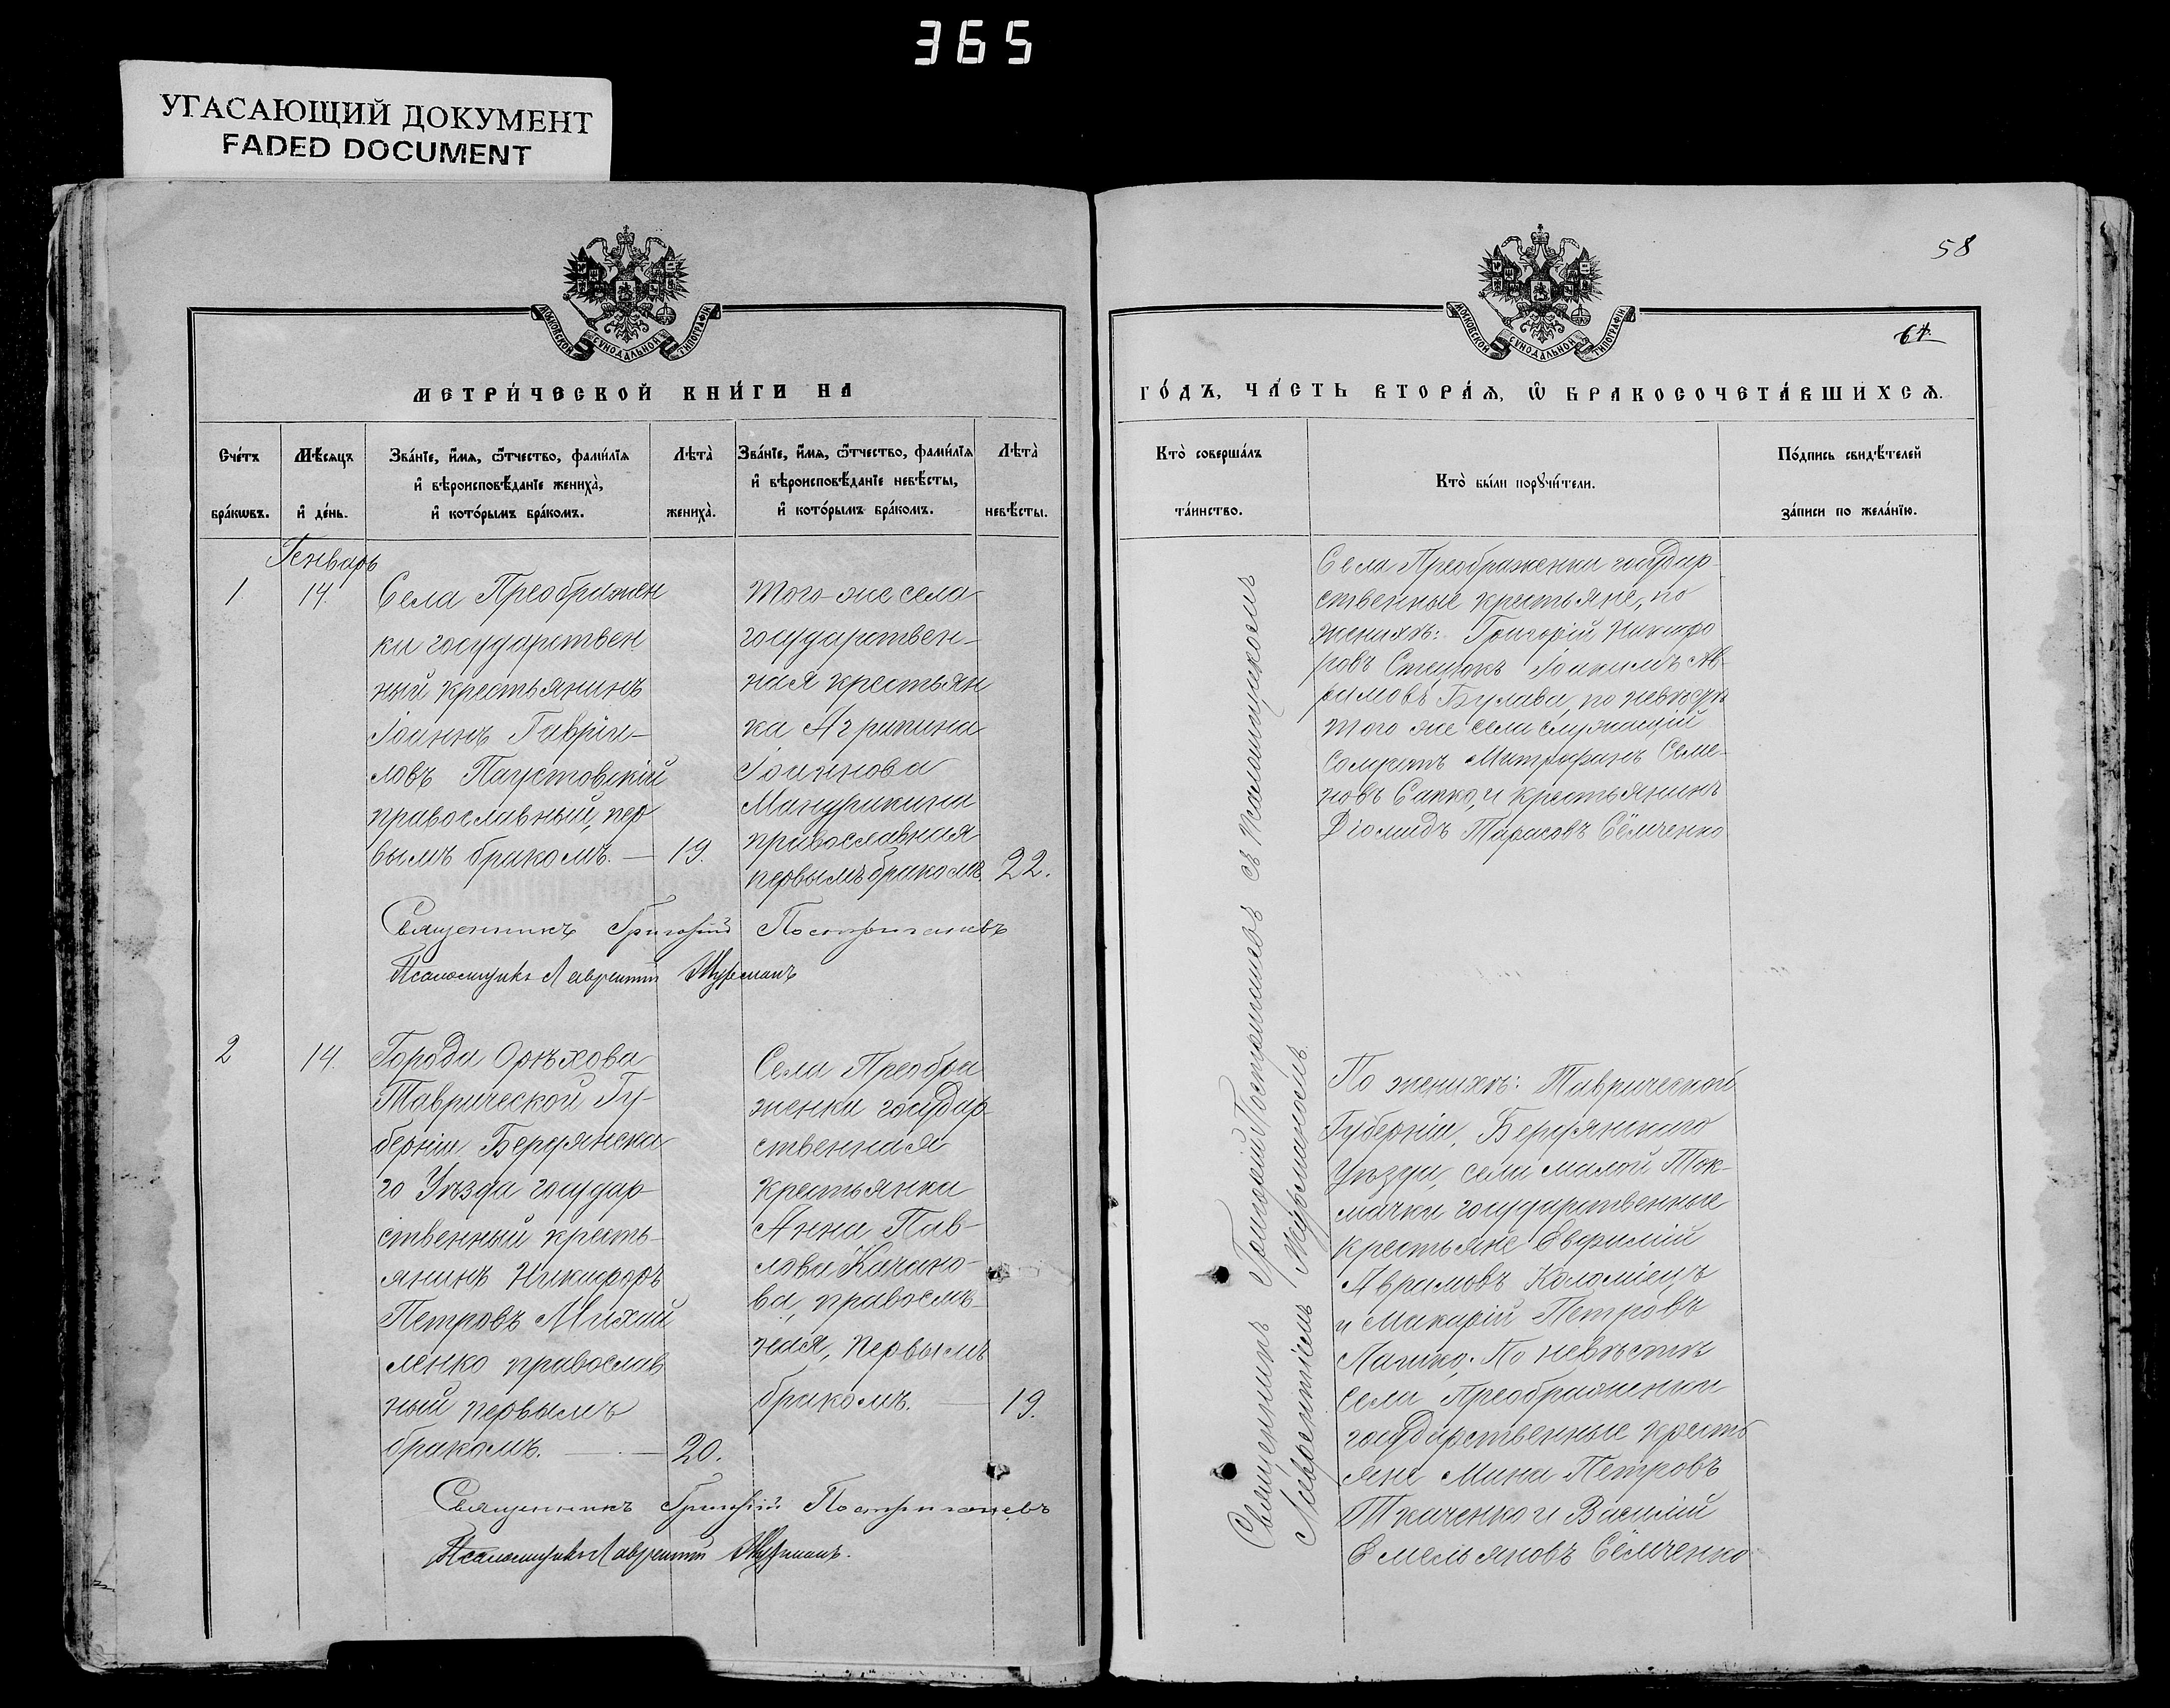 365
УГАСАЮЩИЙ ДОКУМЕНТ
FADED DOCUMENT
МОСКОВСКОЙ СѴНОДАЛЬНОЙ ТИПОГРАФІИ
МЕТРИ́ЧЕСКОЙ КНИ́ГИ НА
Сче́тъ бра́кωвъ.
Мѣ́сяцъ и҆ де́нь.
Зва́нїе, и҆́мѧ, ѻ҆́тчество, фами́лїѧ
и҆ вѣроисповѣ́данїе жениха̀,
и҆ кото́рымъ бра́комъ.
Лѣта̀ жениха̀.
Зва́нїе, и҆́мѧ, ѻ҆́тчество, фами́лїѧ
и҆ вѣроисповѣ́данїе невѣ́сты,
и҆ кото́рымъ бра́комъ.
Лѣта̀ невѣ́сты.
Генварь
1
14.
Села Преображен
ки государствен
ный крестьянинъ
Іоаннъ Гаврiи-
ловъ Паустовскій
православный, пер
вымъ бракомъ. —
19.
Того-же села
государствен-
ная крестьян
ка Агрипина
Іоаннова
православная
первымъ бракомъ
22.
Священникъ Григорій
Псаломщикъ Лаврентій
2
14.
Города Орѣхова
Таврической Гу-
берніи Бердянска
го Уѣзда государ-
ственный кресть-
янинъ Никифоръ
Петровъ Михай
ленко православ
ный первымъ
бракомъ. —
20.
Села Преобра
женки государ-
ственная
крестьянка
Анна Пав-
лова
ва, правосл-
ная, первымъ
бракомъ. —
19.
Священникъ Григорій
Псаломщикъ Лаврентій
58
64
МОСКОВСКОЙ СѴНОДАЛЬНОЙ ТИПОГРАФІИ
ГО́ДЪ, ЧА́СТЬ ВТОРА́Ѧ, Ѽ БРАКОСОЧЕТА́ВШИХСѦ.
Кто̀ соверша́лъ
та́инство.
Кто̀ бы́ли порꙋчи́тели.
По́дпись свидѣ́телей
за́писи по жела́нїю.
Священникъ Григорій съ Псаломщикомъ
Лаврентіемъ
Села Преображенки государ-
ственные крестьяне, по
женихѣ: Григорій Никифо
ровъ Іоакимъ Ав-
рамовъ Булава, по невѣстѣ
того же села служащій
Солдатъ Митрофанъ Семе-
новъ Сапко, и крестьянинъ
Діомидъ Тарасовъ Сёмченко
По женихѣ: Таврической
Губерніи, Бердянскаго
Уѣзда, села малой Ток-
мачки государственные
крестьяне Евфимій
Аврамовъ Коломіецъ
и Макарій Петровъ
по невѣстѣ
села Преображенки
государственные кресть
яне Мина Петровъ
Ткаченко и Василій
Емельяновъ Сёмченко